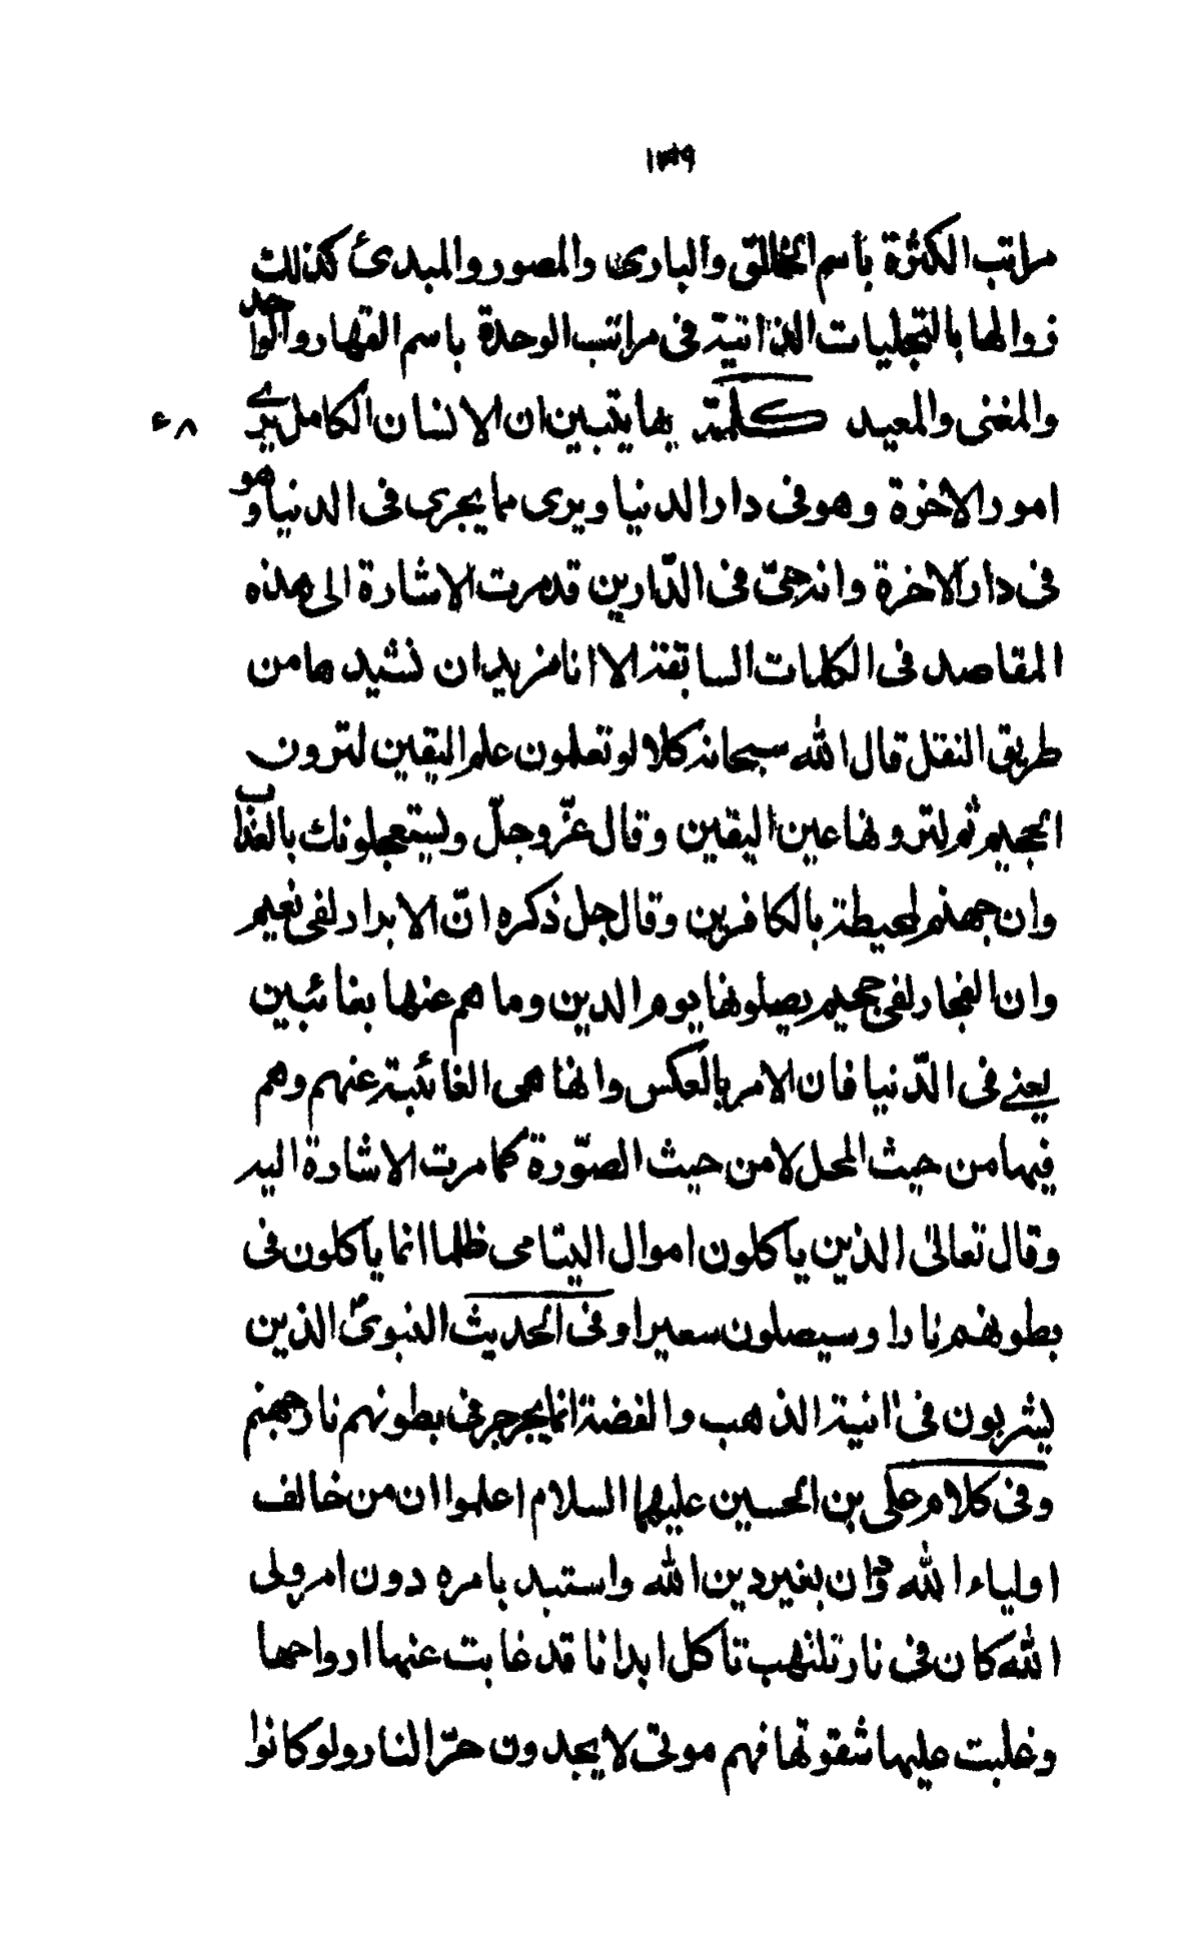 ١٣٩
مراتب الكثرة باسم الخالق والبارئ والمصور والمبدئ كذلك
زوالها بالتجليات الذاتية فى مراتب الوحدة باسم القهار والواحد
والمغنى والمعيد كلمة بها يتبين ان الانسان الكامل يرى
امور الاخرة وهو فى دار الدنيا ويرى ما يجرى فى الدنيا وهو
فى دار الاخرة وانه حىّ فى الدّارين قد مرت الاشارة الى هذه
المقاصد فى الكلمات السابقة الا انا نريد ان نشيدها من
طريق النقل قال الله سبحانه كلا لو تعلمون علم اليقين لترون
الجحيم ثم لترونها عين اليقين وقال عزّ وجلّ ويستعجلونك بالعذاب
وان جهنم لمحيطة بالكافرين وقال جل ذكره انّ الابرار لفى نعيم
وان الفجار لفى جحيم يصلونها يوم الدين وما هم عنها بغائبين
يعنے فى الدّنيا فان الامر بالعكس وانها هى الغائبة عنهم وهم
فيها من حيث المحل لا من حيث الصّورة كما مرت الاشارة اليه
وقال تعالىٰ الذين ياكلون اموال اليتامى ظلما انما ياكلون فى
بطونهم نارا وسيصلون سعيرا وفى الحديث النبوى الذين
يشربون فى انية الذهب والفضة انما يجرجر فى بطونهم نار جهنم
وفى كلام على بن الحسين عليهما السلام اعلموا ان من خالف
اولياء الله ودان بغير دين الله واستبد بامره دون امر ولى
الله كان فى نار تلتهب تاكل ابدانا قد غابت عنها ارواحها
وغلبت عليها شقوتها فهم موتى لا يجدون حرّ النار ولو كانوا